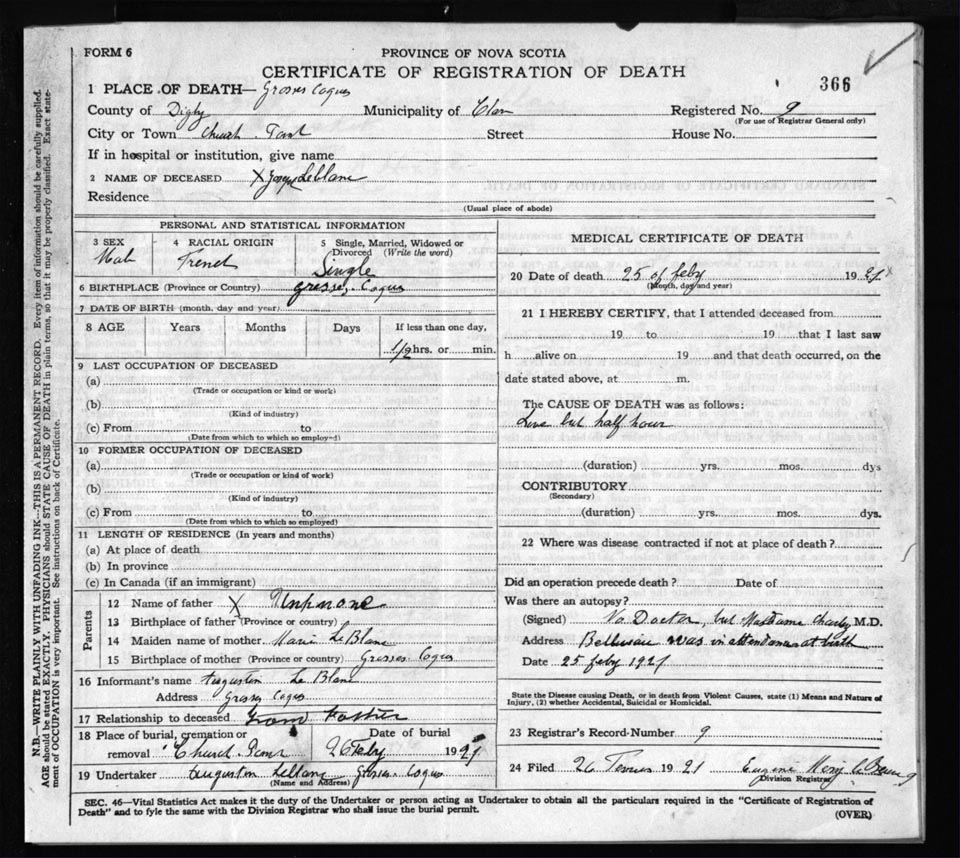 FORM 6
PROVINCE OF NOVA SCOTIA
CERTIFICATE OF REGISTRATION OF DEATH
366
1 PLACE OF DEATH— Grosses Coques
County of Digby Municipality of Clare Registered No. 9
(For use of Registrar General only)
City or Town Church Point Street House No.
If in hospital or institution, give name
2 NAME OF DECEASED X Joseph Leblanc
Residence
(Usual place of abode)
PERSONAL AND STATISTICAL INFORMATION
3 SEX 4 RACIAL ORIGIN 5 Single, Married, Widowed or Divorced (Write the word)
Male French Single
6 BIRTHPLACE (Province or Country) Grosses Coques
7 DATE OF BIRTH (month, day and year)
8 AGE Years Months Days If less than one day,
1/2 hrs. or min.
9 LAST OCCUPATION OF DECEASED
(a)
(Trade or occupation or kind or work)
(b)
(Kind of industry)
(c) From to
(Date from which to which so employed)
10 FORMER OCCUPATION OF DECEASED
(a)
(Trade or occupation or kind of work)
(b)
(Kind of industry)
(c) From to
(Date from which to which so employed)
11 LENGTH OF RESIDENCE (In years and months)
(a) At place of death
(b) In province
(c) In Canada (if an immigrant)
Parents
12 Name of father X Unknone
13 Birthplace of father (Province or country)
14 Maiden name of mother Marie LeBlanc
15 Birthplace of mother (Province or country) Grosses Coques
16 Informant's name Augustin Le Blanc
Address Grosses Coques
17 Relationship to deceased Grand Father
18 Place of burial, cremation or removal Church Point Date of burial 26 Feby 1921
19 Undertaker Augustin Leblanc Grosses Coques
(Name and Address)
MEDICAL CERTIFICATE OF DEATH
20 Date of death 25 of feby 1921
(Month, day and year)
21 I HEREBY CERTIFY, that I attended deceased from
19 to 19 that I last saw
h alive on 19 and that death occurred, on the
date stated above, at m.
The CAUSE OF DEATH was as follows:
Live but half hour
(duration) yrs. mos. dys
CONTRIBUTORY
(Secondary)
(duration) yrs. mos. dys.
22 Where was disease contracted if not at place of death?
Did an operation precede death? Date of
Was there an autopsy?
(Signed) No Docter, but Madame Charley M.D.
Address Belliveau was in attendance at birth
Date 25 feby 1921
State the Disease causing Death, or in death from Violent Causes, state (1) Means and Nature of
Injury, (2) whether Accidental, Suicidal or Homicidal.
23 Registrar's Record-Number 9
24 Filed 26 1921 Eugene
Division Registrar
SEC. 46—Vital Statistics Act makes it the duty of the Undertaker or person acting as Undertaker to obtain all the particulars required in the "Certificate of Registration of
Death" and to fyle the same with the Division Registrar who shall issue the burial permit.
(OVER)
N.B.—WRITE PLAINLY WITH UNFADING INK—THIS IS A PERMANENT RECORD. Every item of information should be carefully supplied.
AGE should be stated EXACTLY. PHYSICIANS should STATE CAUSE OF DEATH in plain terms, so that it may be properly classified. Exact statement of OCCUPATION is very important. See instructions on back of Certificate.